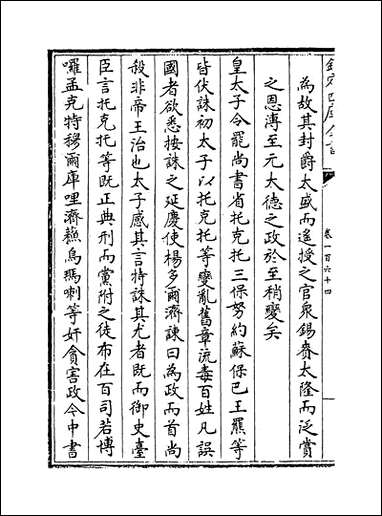 欽定四庫全書
卷一百六十四
為故其封爵太盛而遥授之官衆錫賚太隆而泛賞
之恩溥至元大德之政於至稍變矣
皇太子令罷尚書省托克托三保努約蘇保巴王羆等
皆伏誅初太子以托克托等變亂舊章流毒百姓凡誤
國者欲悉按誅之延慶使楊多爾濟諫曰為政而首尚
殺非帝王治也太子感其言特誅其尤者既而御史臺
臣言托克托等既正典刑而黨附之徒布在百司若博
囉孟克特穆爾庫哩濟蘓烏瑪喇等奸貪害政今中書